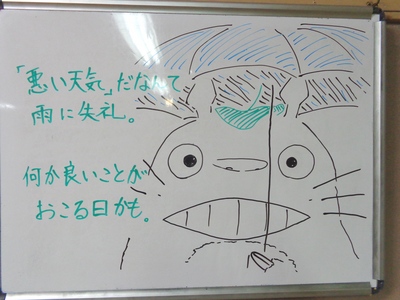 「悪い天気」だなんて
雨に失礼。
何か良いことが
おこる日かも。